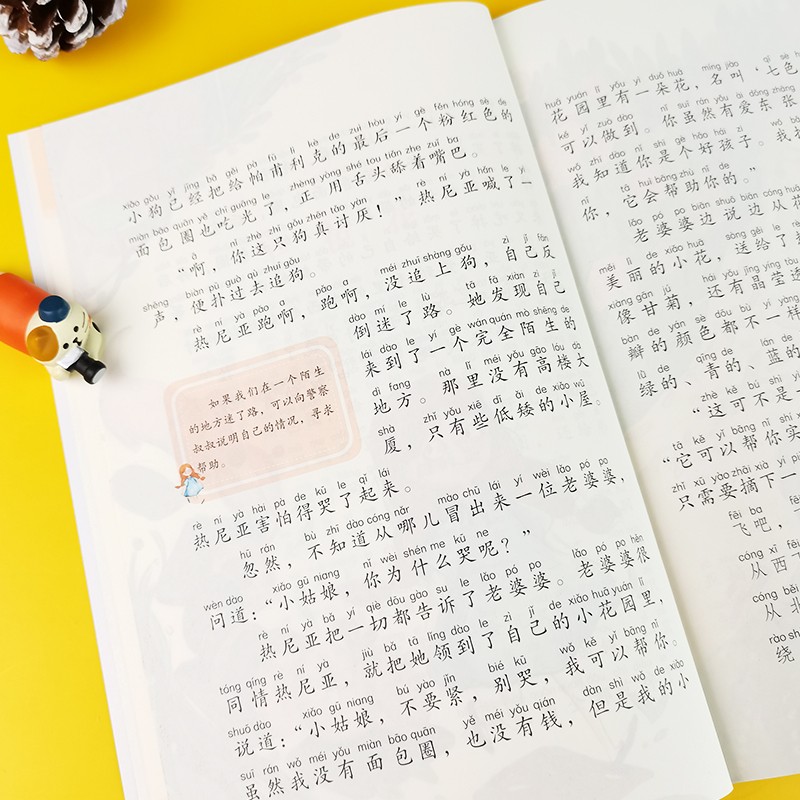 xiǎo gǒu yǐ jīng bǎ gěi pà fǔ lì kè de zuì hòu yí gè fěn hóng sè de
小狗已经把给帕甫利克的最后一个粉红色的
miàn bāo quān yě chī guāng le zhèng yòng shé tou tiǎn zhe zuǐ ba
面包圈也吃光了，正用舌头舔着嘴巴。
ā nǐ zhè zhī gǒu zhēn tǎo yàn rè ní yà hǎn le yì
“啊，你这只狗真讨厌！”热尼亚喊了一
shēng biàn pū guò qù zhuī gǒu
声，便扑过去追狗。
rè ní yà pǎo a pǎo a méi zhuī shàng gǒu zì jǐ fǎn
热尼亚跑啊，跑啊，没追上狗，自己反
dào mí le lù tā fā xiàn zì jǐ
倒迷了路。她发现自己
lái dào le yí gè wán quán mò shēng de
来到了一个完全陌生的
dì fang nà lǐ méi yǒu gāo lóu dà
地方。那里没有高楼大
shà zhǐ yǒu xiē dī ǎi de xiǎo wū
厦，只有些低矮的小屋。
如果我们在一个陌生
的地方迷了路，可以向警察
叔叔说明自己的情况，寻求
帮助。
rè ní yà hài pà de kū le qǐ lái
热尼亚害怕得哭了起来。
hū rán bù zhī dào cóng nǎr mào chū lái yí wèi lǎo pó po
忽然，不知道从哪儿冒出来一位老婆婆，
wèn dào xiǎo gū niang nǐ wèi shén me kū ne
问道：“小姑娘，你为什么哭呢？”
rè ní yà bǎ yí qiè dōu gào su le lǎo pó po lǎo pó po hěn
热尼亚把一切都告诉了老婆婆。老婆婆很
tóng qíng rè ní yà jiù bǎ tā lǐng dào le zì jǐ de xiǎo huā yuán lǐ
同情热尼亚，就把她领到了自己的小花园里，
shuō dào xiǎo gū niang bú yào jǐn bié kū wǒ kě yǐ bāng nǐ
说道：“小姑娘，不要紧，别哭，我可以帮你。
suī rán wǒ méi yǒu miàn bāo quān yě méi yǒu qián dàn shì wǒ de xiǎo
虽然我没有面包圈，也没有钱，但是我的小
huā yuán lǐ yǒu yì duǒ huā míng jiào qī sè
花园里有一朵花，名叫‘七色
kě yǐ zuò dào nǐ suī rán yǒu ài dōng zhāng
可以做到。你虽然有爱东张
wǒ zhī dào nǐ shì gè hǎo hái zi wǒ bǎ
我知道你是个好孩子。我
nǐ tā huì bāng zhù nǐ de
你，它会帮助你的。”
lǎo pó po biān shuō biān cóng huā
老婆婆边说边从花
měi lì de xiǎo huā sòng gěi le
美丽的小花，送给了
xiàng gān jú hái yǒu jīng yíng tòu
像甘菊，还有晶莹透
bàn de yán sè dōu bù yí yàng
瓣的颜色都不一样
lǜ de qīng de lán de
绿的、青的、蓝的
zhè kě bú shì yì
“这可不是一
tā kě yǐ bāng nǐ shí
“它可以帮你实
zhǐ xū yào zhāi xià yí
只需要摘下一
fēi ba
飞吧，
cóng xī fēi
从西飞
cóng běi
从北
rào
绕